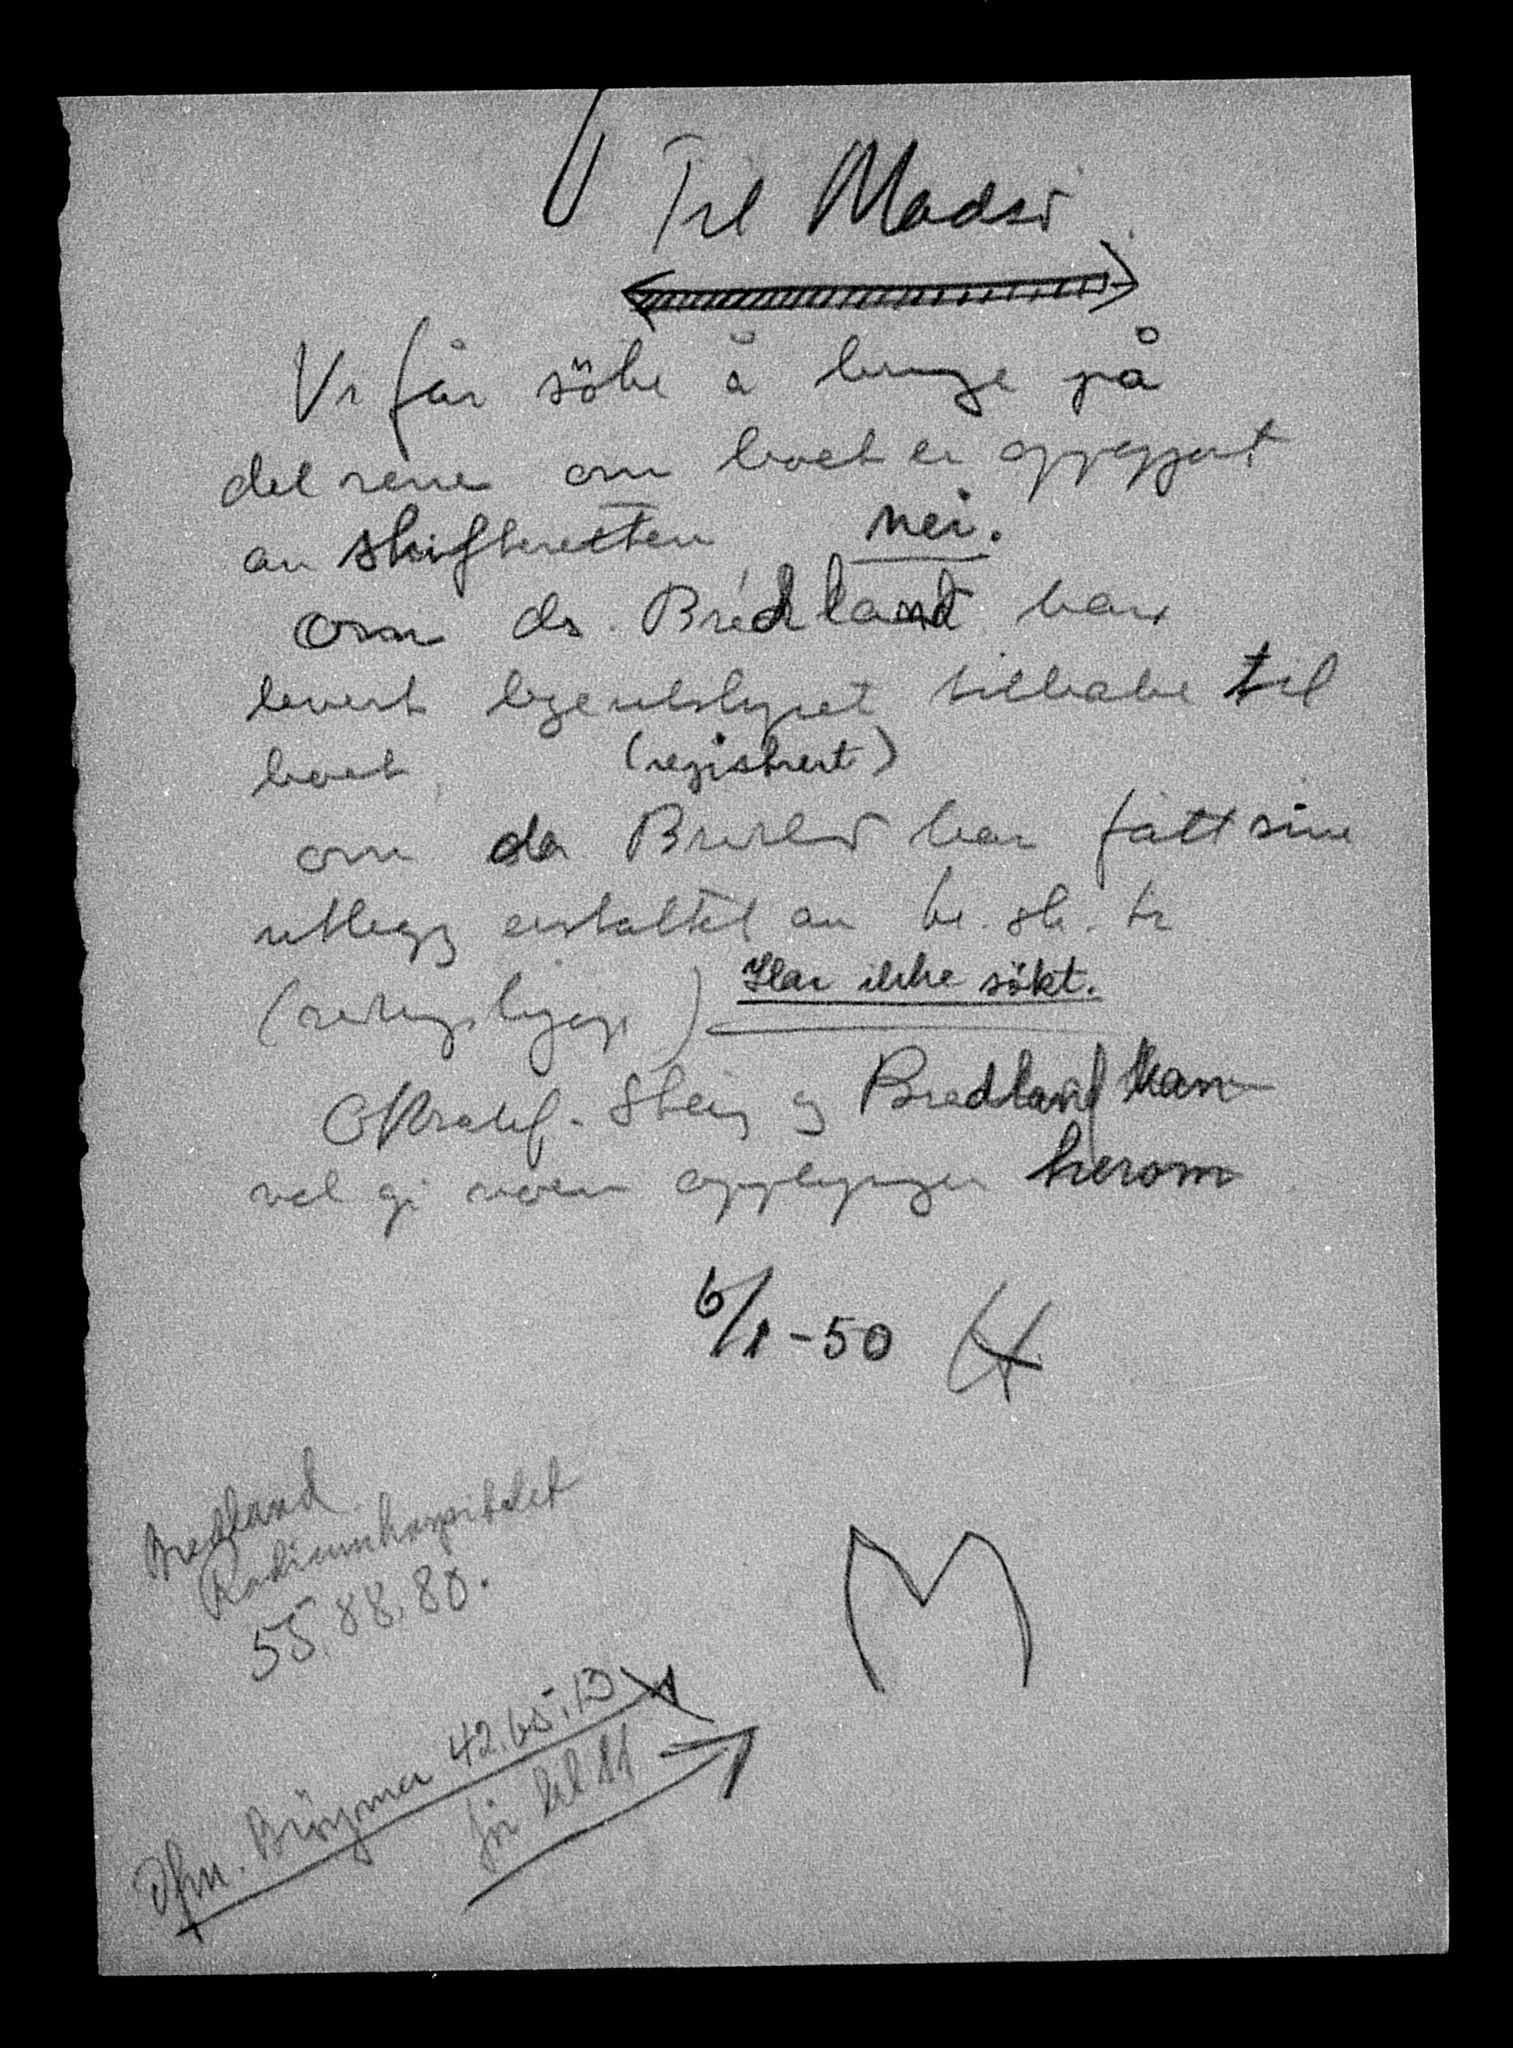 Til Madsø
Vi får söke å bringe på
det rene om boet er oppgjort
av skifteretten nei.
Om dr. Bredland har
levert legeutstyret tilbake til
boet (registrert)
om dr Bredland har fått sine
utlegg erstattet av
Har ikke søkt.
og Bredland kan
vel gi noen opplysninger herom
6/1-50 H
Bredland
Radiumhospitalet
55.88.80.
M
42.65.13
før kl 11